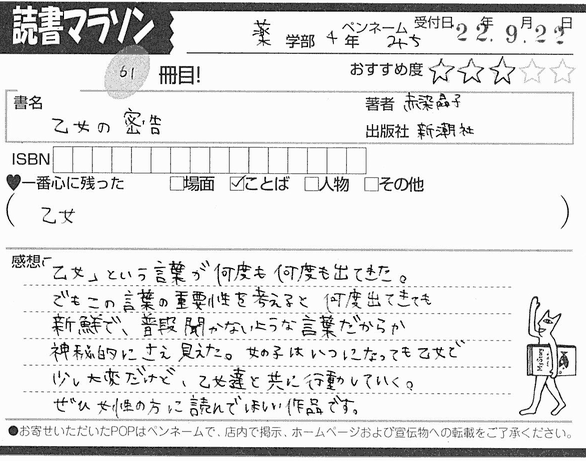 読書マラソン
薬 学部 4 年 ペンネーム みち 受付日 22年 9月 22日
61 冊目!
おすすめ度 ☆☆☆☆☆
書名 乙女の密告
著者 赤染晶子
出版社 新潮社
ISBN
♥一番心に残った □場面 ☑ことば □人物 □その他
( 乙女 )
感想 「乙女」という言葉が何度も何度も出てきた。
でもこの言葉の重要性を考えると 何度出てきても
新鮮で、普段聞かないような言葉だからか
神秘的にさえ見えた。女の子はいつになっても乙女で
少し大変だけど、乙女達と共に行動していく。
ぜひ女性の方に読んでほしい作品です。
●お寄せいただいたPOPはペンネームで、店内で掲示、ホームページおよび宣伝物への転載をご了承ください。